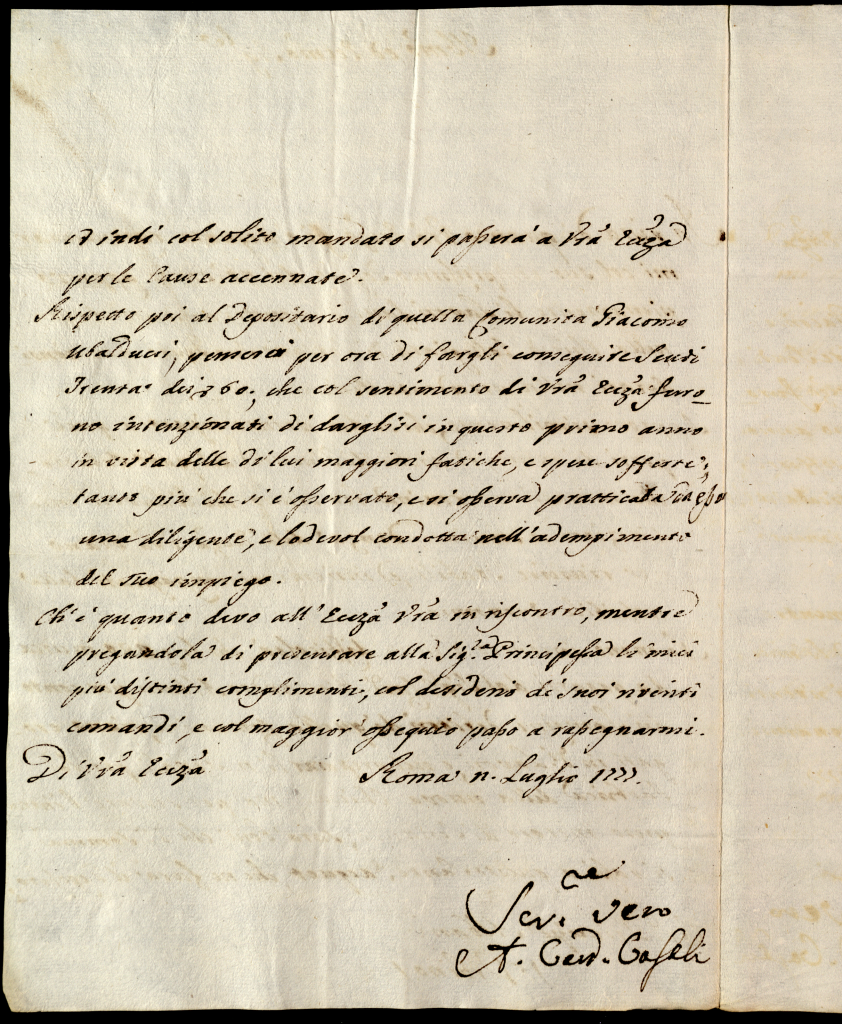 ed indi col solito mandato si passerà a Vr̃a Ecc̃za
per le Cause accennate.
Rispetto poi al Depositario di quella Comunità Giacomo
Ubalducci, penserei per ora di fargli conseguire Scudi
Trenta dei 60., che col sentimento di Vr̃a Ecc̃za furo_
no intenzionati di darglisi in questo primo anno
in vista delle di lui maggiori fatiche, e spese sofferte;
tanto più che si è osservato, e si osserva pratticata da esso
una diligente, e lodevol condotta nell'adempimento
del suo impiego.
Ch'è quanto devo all'Ecc̃za Vr̃a in riscontro, mentre
pregandola di presentare alla Sig.ra Principessa li miei
più distinti complimenti, col desiderio de' suoi riveriti
comandi, e col maggior ossequio passo a rassegnarmi.
Di Vr̃a Ecc̃za Roma 11. Luglio 1777.
Serv.re vero
A. Card. Casali